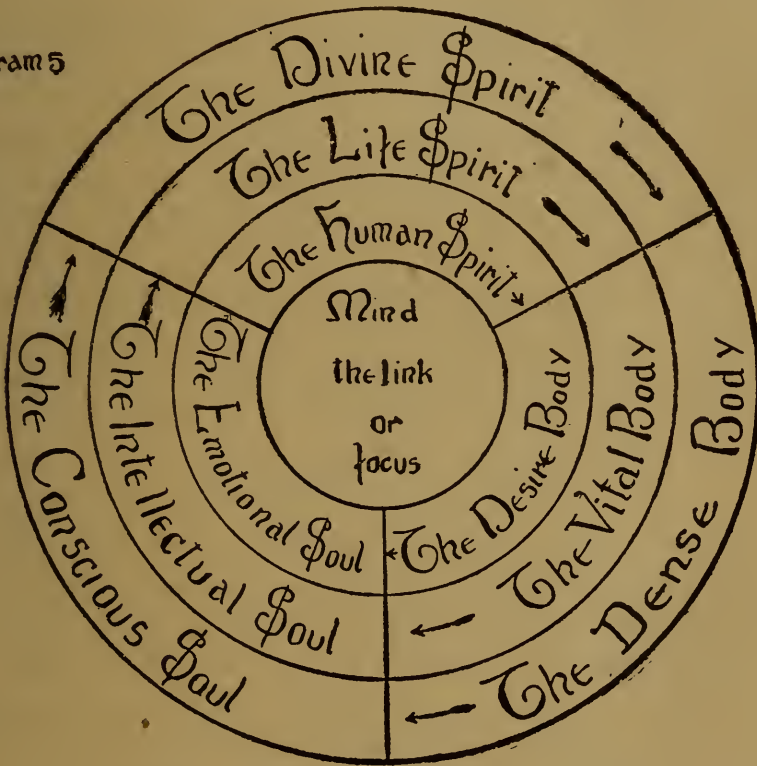 ram 5
The Divine Spirit
The Life Spirit
The Human Spirit
Mind
the link
or
focus
The Desire Body
The Vital Body
The Dense Body
The Emotional Soul
The Intellectual Soul
The Conscious Soul